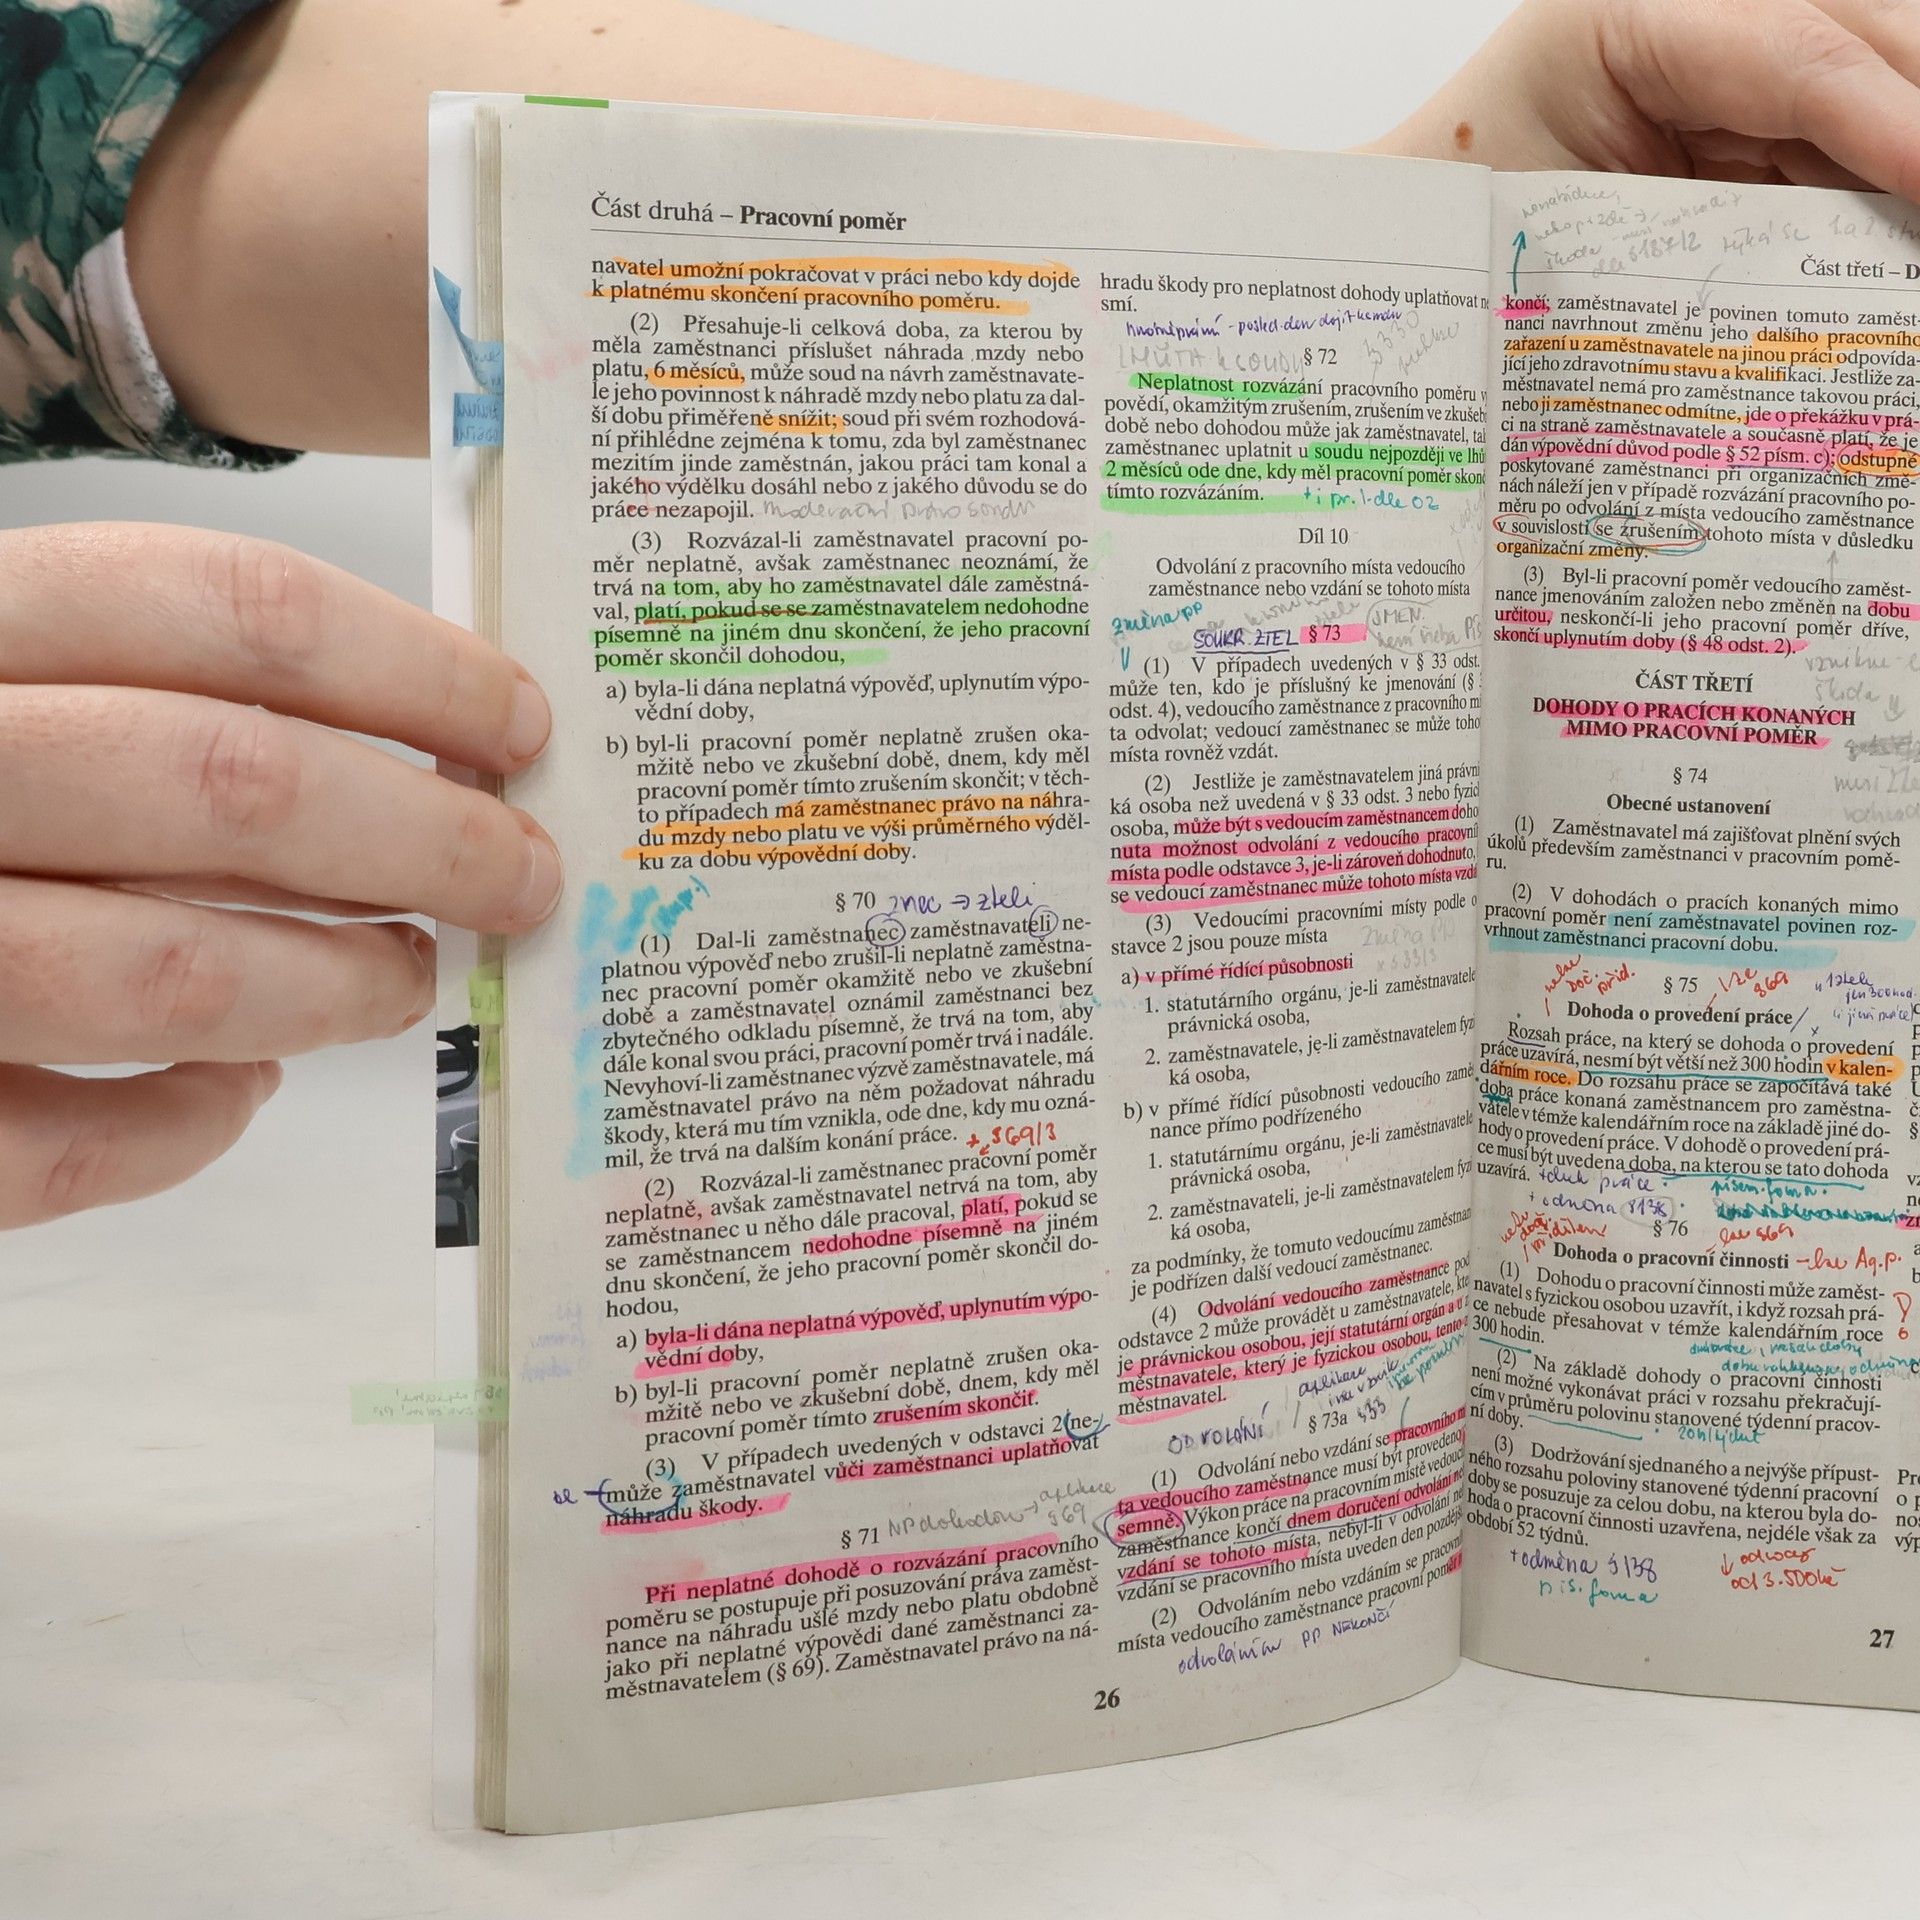 Část druhá – Pracovní poměr
navatel umožní pokračovat v práci nebo kdy dojde
k platnému skončení pracovního poměru.
(2) Přesahuje-li celková doba, za kterou by
měla zaměstnanci příslušet náhrada mzdy nebo
platu, 6 měsíců, může soud na návrh zaměstnavate-
le jeho povinnost k náhradě mzdy nebo platu za dal-
ší dobu přiměřeně snížit; soud při svém rozhodová-
ní přihlédne zejména k tomu, zda byl zaměstnanec
mezitím jinde zaměstnán, jakou práci tam konal a
jakého výdělku dosáhl nebo z jakého důvodu se do
práce nezapojil. moderační právo soudu
(3) Rozvázal-li zaměstnavatel pracovní po-
měr neplatně, avšak zaměstnanec neoznámí, že
trvá na tom, aby ho zaměstnavatel dále zaměstná-
val, platí, pokud se se zaměstnavatelem nedohodne
písemně na jiném dnu skončení, že jeho pracovní
poměr skončil dohodou,
a) byla-li dána neplatná výpověď, uplynutím výpo-
vědní doby,
b) byl-li pracovní poměr neplatně zrušen oka-
mžitě nebo ve zkušební době, dnem, kdy měl
pracovní poměr tímto zrušením skončit; v těch-
to případech má zaměstnanec právo na náhra-
du mzdy nebo platu ve výši průměrného výděl-
ku za dobu výpovědní doby.
§ 70 znec → zteli
(1) Dal-li zaměstnanec zaměstnavateli ne-
platnou výpověď nebo zrušil-li neplatně zaměstna-
nec pracovní poměr okamžitě nebo ve zkušební
době a zaměstnavatel oznámil zaměstnanci bez
zbytečného odkladu písemně, že trvá na tom, aby
dále konal svou práci, pracovní poměr trvá i nadále.
Nevyhoví-li zaměstnanec výzvě zaměstnavatele, má
zaměstnavatel právo na něm požadovat náhradu
škody, která mu tím vznikla, ode dne, kdy mu ozná-
mil, že trvá na dalším konání práce. + §69/3
(2) Rozvázal-li zaměstnanec pracovní poměr
neplatně, avšak zaměstnavatel netrvá na tom, aby
zaměstnanec u něho dále pracoval, platí, pokud se
se zaměstnancem nedohodne písemně na jiném
dnu skončení, že jeho pracovní poměr skončil do-
hodou,
a) byla-li dána neplatná výpověď, uplynutím výpo-
vědní doby,
b) byl-li pracovní poměr neplatně zrušen oka-
mžitě nebo ve zkušební době, dnem, kdy měl
pracovní poměr tímto zrušením skončit.
(3) V případech uvedených v odstavci 2 ne-
může zaměstnavatel vůči zaměstnanci uplatňovat
náhradu škody.
§ 71 NP dohodou → aplikace §69
Při neplatné dohodě o rozvázání pracovního
poměru se postupuje při posuzování práva zaměst-
nance na náhradu ušlé mzdy nebo platu obdobně
jako při neplatné výpovědi dané zaměstnanci za-
městnavatelem (§ 69). Zaměstnavatel právo na ná-
hradu škody pro neplatnost dohody uplatňovat ne
smí.
§ 72
Neplatnost rozvázání pracovního poměru v
povědí, okamžitým zrušením, zrušením ve zkušeb
době nebo dohodou může jak zaměstnavatel, tak
zaměstnanec uplatnit u soudu nejpozději ve lhů
2 měsíců ode dne, kdy měl pracovní poměr skonč
tímto rozvázáním. + i pr. 1-dle OZ
Díl 10
Odvolání z pracovního místa vedoucího
zaměstnance nebo vzdání se tohoto místa
změna PP
SOUKR. ZTEL § 73 JMEN.
(1) V případech uvedených v § 33 odst.
může ten, kdo je příslušný ke jmenování (§
odst. 4), vedoucího zaměstnance z pracovního mí
ta odvolat; vedoucí zaměstnanec se může toho
místa rovněž vzdát.
(2) Jestliže je zaměstnavatelem jiná právni
ká osoba než uvedená v § 33 odst. 3 nebo fyzic
osoba, může být s vedoucím zaměstnancem doho
nuta možnost odvolání z vedoucího pracovní
místa podle odstavce 3, je-li zároveň dohodnuto,
se vedoucí zaměstnanec může tohoto místa vzdá
(3) Vedoucími pracovními místy podle o
stavce 2 jsou pouze místa
a) v přímé řídící působnosti
1. statutárního orgánu, je-li zaměstnavatele
právnická osoba,
2. zaměstnavatele, je-li zaměstnavatelem fyzi
ká osoba,
b) v přímé řídící působnosti vedoucího zamě
nance přímo podřízeného
1. statutárnímu orgánu, je-li zaměstnavatele
právnická osoba,
2. zaměstnavateli, je-li zaměstnavatelem fyzi
ká osoba,
za podmínky, že tomuto vedoucímu zaměstnan
je podřízen další vedoucí zaměstnanec.
(4) Odvolání vedoucího zaměstnance pod
odstavce 2 může provádět u zaměstnavatele, kte
je právnickou osobou, její statutární orgán a u z
městnavatele, který je fyzickou osobou, tento
městnavatel.
ODVOLÁNÍ § 73a §33
(1) Odvolání nebo vzdání se pracovního mí
ta vedoucího zaměstnance musí být provedeno
semně. Výkon práce na pracovním místě vedoucí
zaměstnance končí dnem doručení odvolání ne
vzdání se tohoto místa, nebyl-li v odvolání ne
vzdání se pracovního místa uveden den pozdější
(2) Odvoláním nebo vzdáním se pracovní
místa vedoucího zaměstnance pracovní poměr n
odvoláním PP NEKONČÍ
26
Část třetí – D
končí; zaměstnavatel je povinen tomuto zaměst-
nanci navrhnout změnu jeho dalšího pracovního
zařazení u zaměstnavatele na jinou práci odpovída-
jící jeho zdravotnímu stavu a kvalifikaci. Jestliže za-
městnavatel nemá pro zaměstnance takovou práci,
nebo ji zaměstnanec odmítne, jde o překážku v prá-
ci na straně zaměstnavatele a současně platí, že je
dán výpovědní důvod podle § 52 písm. c); odstupné
poskytované zaměstnanci při organizačních změ-
nách náleží jen v případě rozvázání pracovního po-
měru po odvolání z místa vedoucího zaměstnance
v souvislosti se zrušením tohoto místa v důsledku
organizační změny.
(3) Byl-li pracovní poměr vedoucího zaměst-
nance jmenováním založen nebo změněn na dobu
určitou, neskončí-li jeho pracovní poměr dříve,
skončí uplynutím doby (§ 48 odst. 2).
ČÁST TŘETÍ
DOHODY O PRACÍCH KONANÝCH
MIMO PRACOVNÍ POMĚR
§ 74
Obecné ustanovení
(1) Zaměstnavatel má zajišťovat plnění svých
úkolů především zaměstnanci v pracovním pomě-
ru.
(2) V dohodách o pracích konaných mimo
pracovní poměr není zaměstnavatel povinen roz-
vrhnout zaměstnanci pracovní dobu.
§ 75
Dohoda o provedení práce
Rozsah práce, na který se dohoda o provedení
práce uzavírá, nesmí být větší než 300 hodin v kalen-
dářním roce. Do rozsahu práce se započítává také
doba práce konaná zaměstnancem pro zaměstna-
vatele v témže kalendářním roce na základě jiné do-
hody o provedení práce. V dohodě o provedení prá-
ce musí být uvedena doba, na kterou se tato dohoda
uzavírá. + druh práce
+ odměna §138 písem. forma
§ 76 lze §69
Dohoda o pracovní činnosti
(1) Dohodu o pracovní činnosti může zaměst-
navatel s fyzickou osobou uzavřít, i když rozsah prá-
ce nebude přesahovat v témže kalendářním roce
300 hodin.
(2) Na základě dohody o pracovní činnosti
není možné vykonávat práci v rozsahu překračují-
cím v průměru polovinu stanovené týdenní pracov-
ní doby. 20h/týdně
(3) Dodržování sjednaného a nejvýše přípust-
ného rozsahu poloviny stanovené týdenní pracovní
doby se posuzuje za celou dobu, na kterou byla do-
hoda o pracovní činnosti uzavřena, nejdéle však za
období 52 týdnů.
+ odměna §138
pís. forma
↓ odvody
od 3.500kč
27